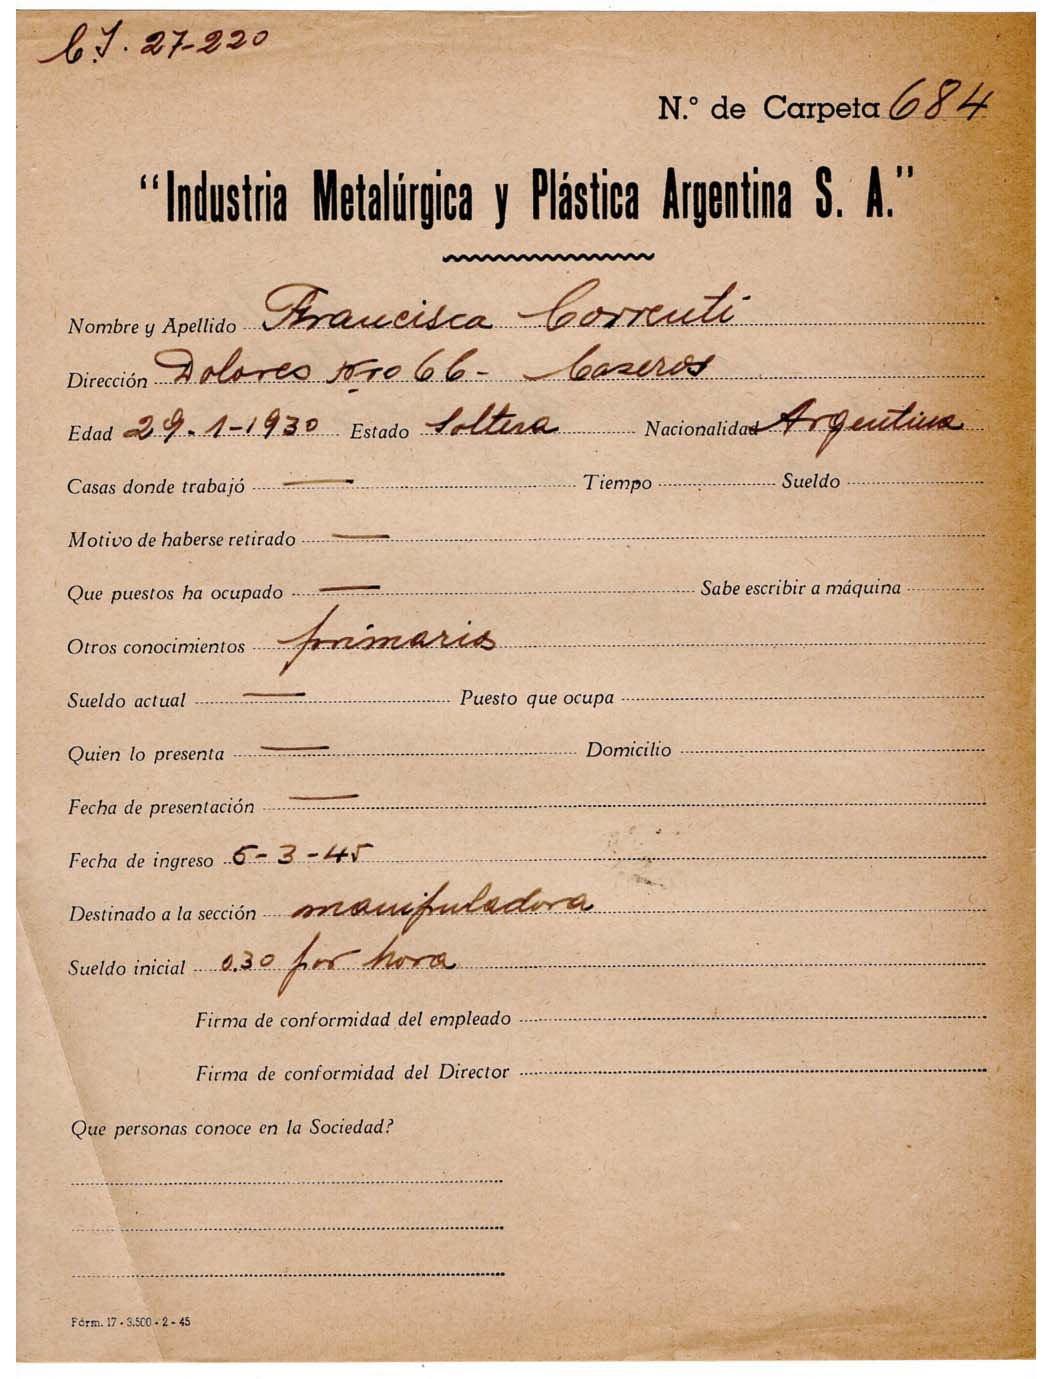 C.I. 27-220
N.º de Carpeta 684
“Industria Metalúrgica y Plástica Argentina S. A.”
Nombre y Apellido Francisca Correnti
Dirección Dolores Nro 66 - Caseros
Edad 29-1-1930 Estado Soltera Nacionalidad Argentina
Casas donde trabajó — Tiempo Sueldo
Motivo de haberse retirado —
Que puestos ha ocupado — Sabe escribir a máquina
Otros conocimientos primario
Sueldo actual — Puesto que ocupa
Quien lo presenta — Domicilio
Fecha de presentación —
Fecha de ingreso 5-3-45
Destinado a la sección manipuladora
Sueldo inicial 0.30 por hora
Firma de conformidad del empleado
Firma de conformidad del Director
Que personas conoce en la Sociedad?
Fórm. 17 - 3.500 - 2 - 45